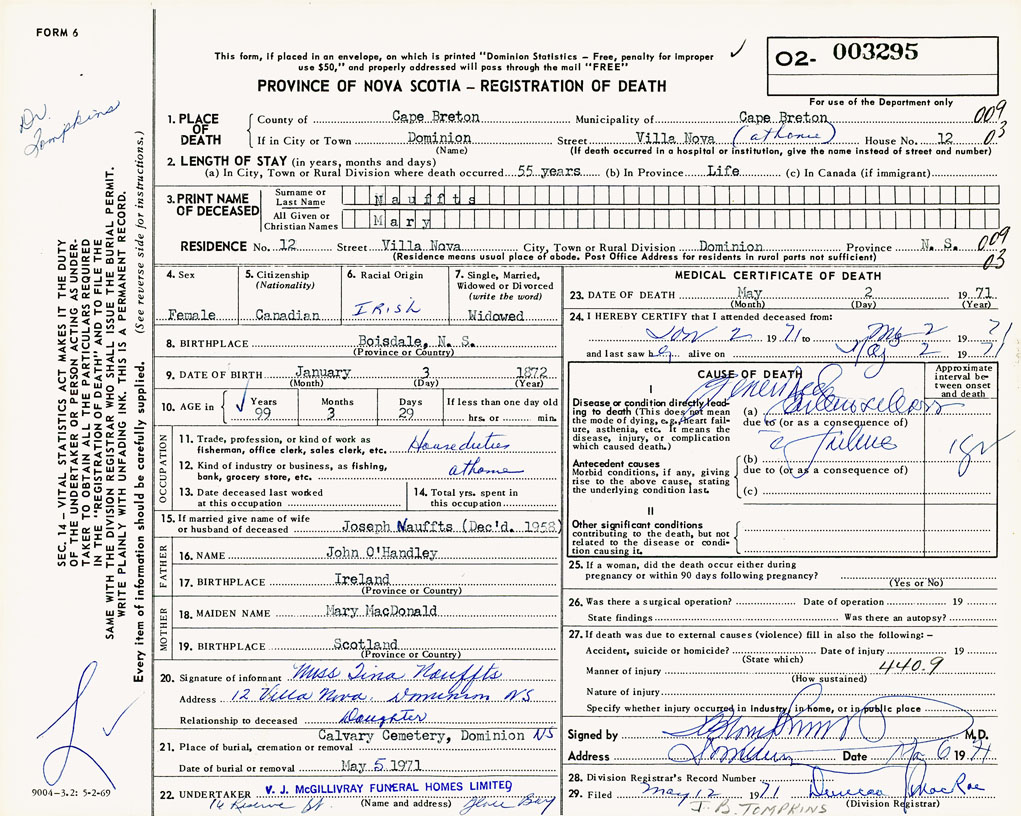 FORM 6
This form, if placed in an envelope, on which is printed "Dominion Statistics – Free, penalty for improper
use $50," and properly addressed will pass through the mail "FREE"
O2- 003295
For use of the Department only
PROVINCE OF NOVA SCOTIA – REGISTRATION OF DEATH
Dr. Tompkins
SEC. 14 – VITAL STATISTICS ACT MAKES IT THE DUTY
OF THE UNDERTAKER OR PERSON ACTING AS UNDER-
TAKER TO OBTAIN ALL THE PARTICULARS REQUIRED
IN THE "REGISTRATION OF DEATH" AND TO FILE THE
SAME WITH THE DIVISION REGISTRAR WHO SHALL ISSUE THE BURIAL PERMIT.
WRITE PLAINLY WITH UNFADING INK. THIS IS A PERMANENT RECORD.
Every item of information should be carefully supplied. (See reverse side for instructions.)
9004-3.2: 5-2-69
1. PLACE OF DEATH
County of Cape Breton Municipality of Cape Breton 009
If in City or Town Dominion Street Villa Nova (at home) House No. 12 03
(Name) (If death occurred in a hospital or institution, give the name instead of street and number)
2. LENGTH OF STAY (in years, months and days)
(a) In City, Town or Rural Division where death occurred 55 years (b) In Province Life (c) In Canada (if immigrant)
3. PRINT NAME OF DECEASED
Surname or Last Name Nauffts
All Given or Christian Names Mary
RESIDENCE No. 12 Street Villa Nova City, Town or Rural Division Dominion Province N. S. 009
(Residence means usual place of abode. Post Office Address for residents in rural parts not sufficient) 03
4. Sex
Female
5. Citizenship
(Nationality)
Canadian
6. Racial Origin
IRish
7. Single, Married,
Widowed or Divorced
(write the word)
Widowed
8. BIRTHPLACE Boisdale, N. S.
(Province or Country)
9. DATE OF BIRTH January 3 1872
(Month) (Day) (Year)
10. AGE in
Years Months Days If less than one day old
99 3 29 hrs. or min.
OCCUPATION
11. Trade, profession, or kind of work as
fisherman, office clerk, sales clerk, etc. House duties
12. Kind of industry or business, as fishing,
bank, grocery store, etc. at home
13. Date deceased last worked
at this occupation
14. Total yrs. spent in
this occupation
15. If married give name of wife
or husband of deceased Joseph Nauffts (Dec'd. 1958)
FATHER
16. NAME John O'Handley
17. BIRTHPLACE Ireland
(Province or Country)
MOTHER
18. MAIDEN NAME Mary MacDonald
19. BIRTHPLACE Scotland
(Province or Country)
20. Signature of informant Miss Tina Nauffts
Address 12 Villa Nova. Dominion NS
Relationship to deceased Daughter
21. Place of burial, cremation or removal Calvary Cemetery, Dominion NS
Date of burial or removal May 5 1971
22. UNDERTAKER V. J. McGILLIVRAY FUNERAL HOMES LIMITED
(Name and address)
16 Reserve St. Glace Bay
MEDICAL CERTIFICATE OF DEATH
23. DATE OF DEATH May 2 1971
(Month) (Day) (Year)
24. I HEREBY CERTIFY that I attended deceased from:
Jan 2 1971 to May 2 1971
and last saw her alive on May 2 1971
CAUSE OF DEATH
Approximate
interval be-
tween onset
and death
I
Disease or condition directly lead-
ing to death (This does not mean
the mode of dying, e.g., heart fail-
ure, asthenia, etc. It means the
disease, injury, or complication
which caused death.)
(a) Generalized
due to (or as a consequence of)
Antecedent causes
Morbid conditions, if any, giving
rise to the above cause, stating
the underlying condition last.
(b)
due to (or as a consequence of)
(c)
II
Other significant conditions
contributing to the death, but not
related to the disease or condi-
tion causing it.
25. If a woman, did the death occur either during
pregnancy or within 90 days following pregnancy?
(Yes or No)
26. Was there a surgical operation? Date of operation 19
State findings Was there an autopsy?
27. If death was due to external causes (violence) fill in also the following: –
Accident, suicide or homicide? Date of injury 19
(State which)
Manner of injury 440.9
(How sustained)
Nature of injury
Specify whether injury occurred in industry, in home, or in public place
Signed by M.D.
Address Dominion Date May 6 1971
28. Division Registrar's Record Number
29. Filed May 12 1971 Duncan MacRae
(Division Registrar)
J. B. TOMPKINS